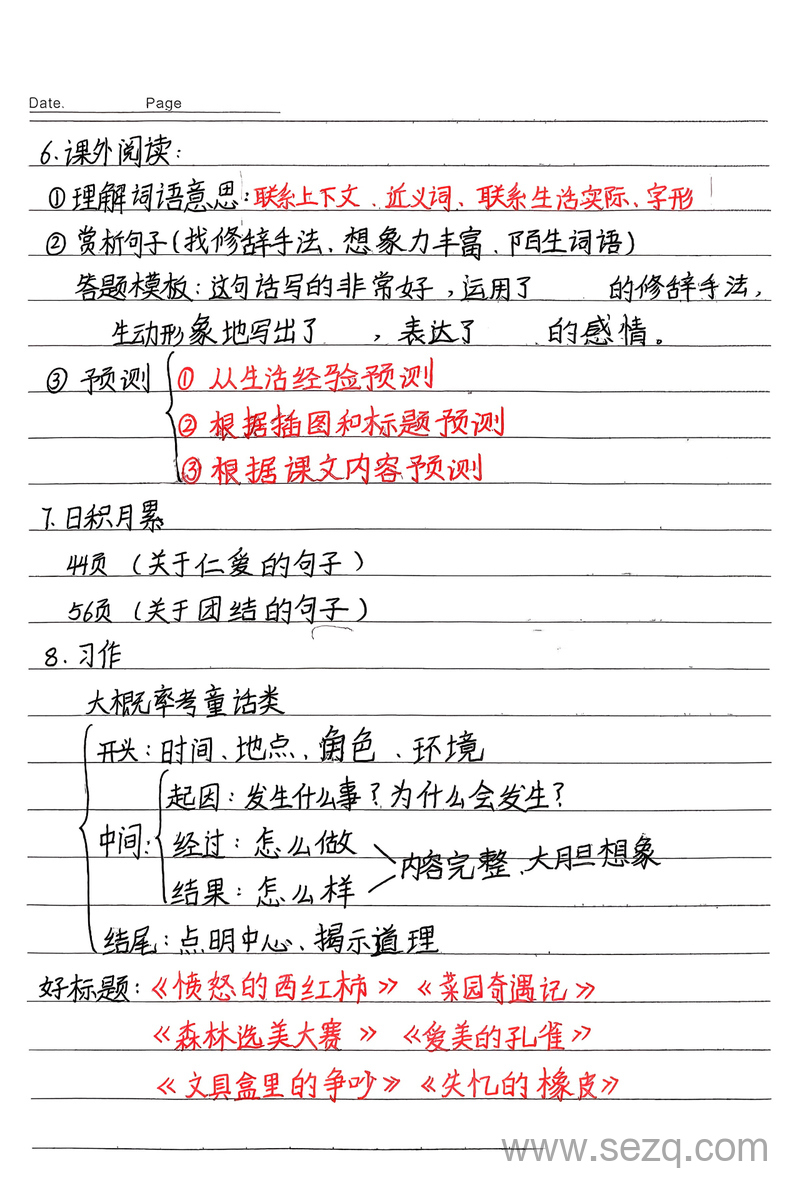 Date. Page
6.课外阅读:
①理解词语意思:联系上下文、近义词、联系生活实际、字形
②赏析句子(找修辞手法、想象力丰富、陌生词语)
答题模板:这句话写的非常好,运用了 的修辞手法,
生动形象地写出了 ,表达了 的感情。
③预测 ①从生活经验预测
②根据插图和标题预测
③根据课文内容预测
7.日积月累
44页(关于仁爱的句子)
56页(关于团结的句子)
8.习作
大概率考童话类
开头:时间、地点、角色、环境
起因:发生什么事?为什么会发生?
中间: 经过:怎么做
内容完整、大胆想象
结果:怎么样
结尾:点明中心、揭示道理
好标题:《愤怒的西红柿》《菜园奇遇记》
《森林选美大赛》《爱美的孔雀》
《文具盒里的争吵》《失忆的橡皮》
www.sezq.com